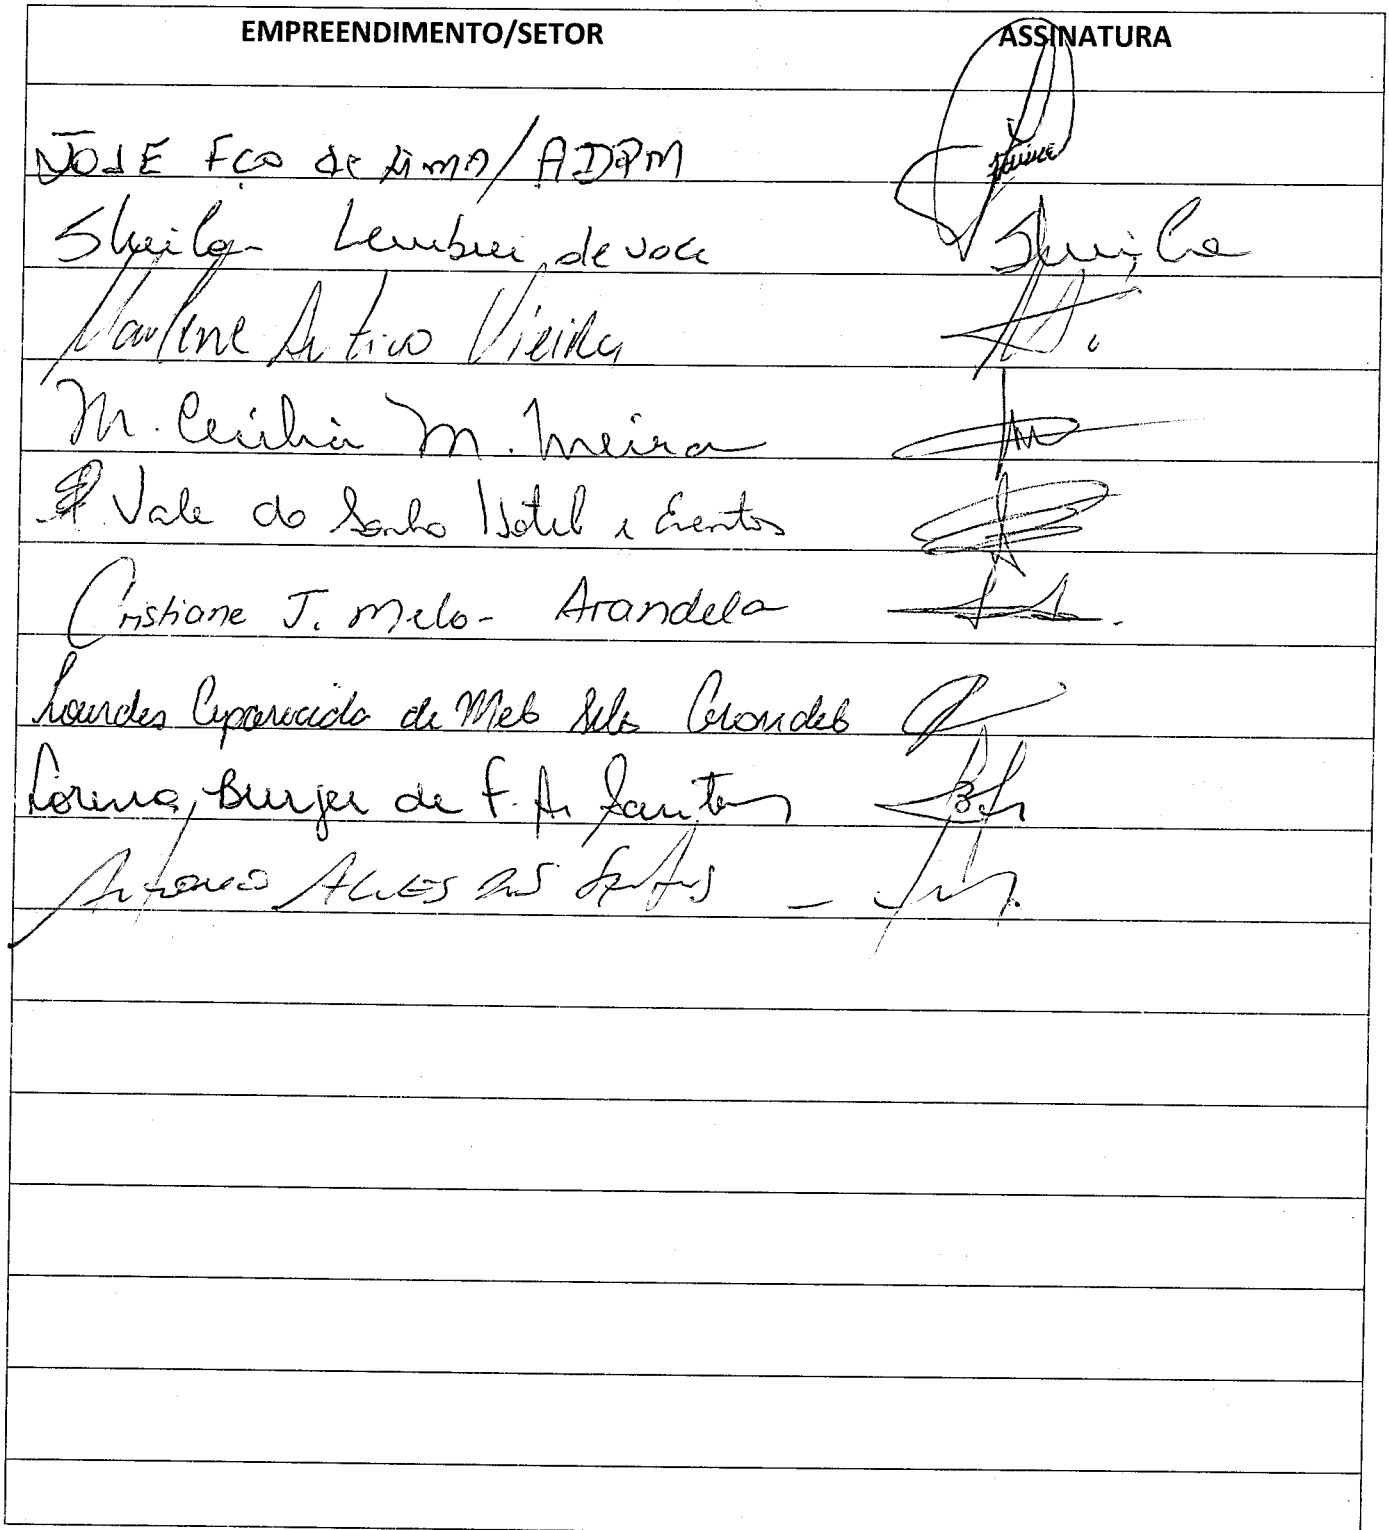 EMPREENDIMENTO/SETOR ASSINATURA
JOSE FCO de Lima/ADPM
Sheila Lembrei de voce Sheila
Marlene Antico Vieira
M. Cecilia M. Meira
Vale do Sonho Hotel e Eventos
Cristiane J. Melo - Arandela
Lourdes Aparecida de Melo Arandela
Lorena Burger de F. A. Santos
Antonio ALVES dos Santos